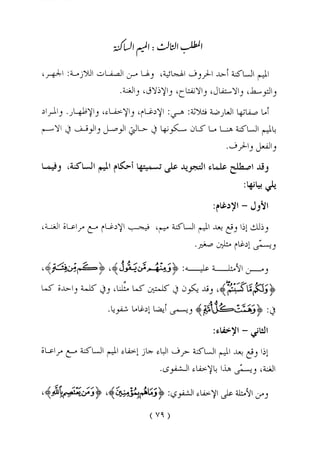 المطلب الثالث : الميم الساكنة
الميم الساكنة أحد الحروف الهجائية، ولها من الصفات اللازمة: الجهر،
والتوسط، والاستفال، والانفتاح، والإذلاق، والغنة.
أما صفاتها العارضة فثلاثة: هي: الإدغام، والإخفاء، والإظهار. والمراد
بالميم الساكنة هنا ما كان سكونها في حالتي الوصل والوقف في الاسم
والفعل والحرف.
وقد اصطلح علماء التجويد على تسميتها أحكام الميم الساكنة، وفيما
يلي بيانها:
الأول – الإدغام:
وذلك إذا وقع بعد الميم الساكنة ميم، فيجب الإدغام مع مراعاة الغنة،
ويسمى إدغام مثلين صغير.
ومن الأمثلة عليه: ﴿وَمِنْهُم مَّن يَقُولُ﴾، ﴿كَم مِّن فِئَةٍ﴾،
﴿وَلَكُم مَّا كَسَبْتُمْ﴾، وقد يكون في كلمتين كما مثلنا، وفي كلمة واحدة كما
في: ﴿وَهَمَّتْ كُلُّ أُمَّةٍ﴾ ويسمى أيضا إدغاما شفويا.
الثاني – الإخفاء:
إذا وقع بعد الميم الساكنة حرف الباء جاز إخفاء الميم الساكنة مع مراعاة
الغنة، ويسمّى هذا بالإخفاء الشفوي.
ومن الأمثلة على الإخفاء الشفوي: ﴿وَمَا هُم بِمُؤْمِنِينَ﴾، ﴿وَمَن يَعْتَصِم بِاللَّهِ﴾،
(٧٩)